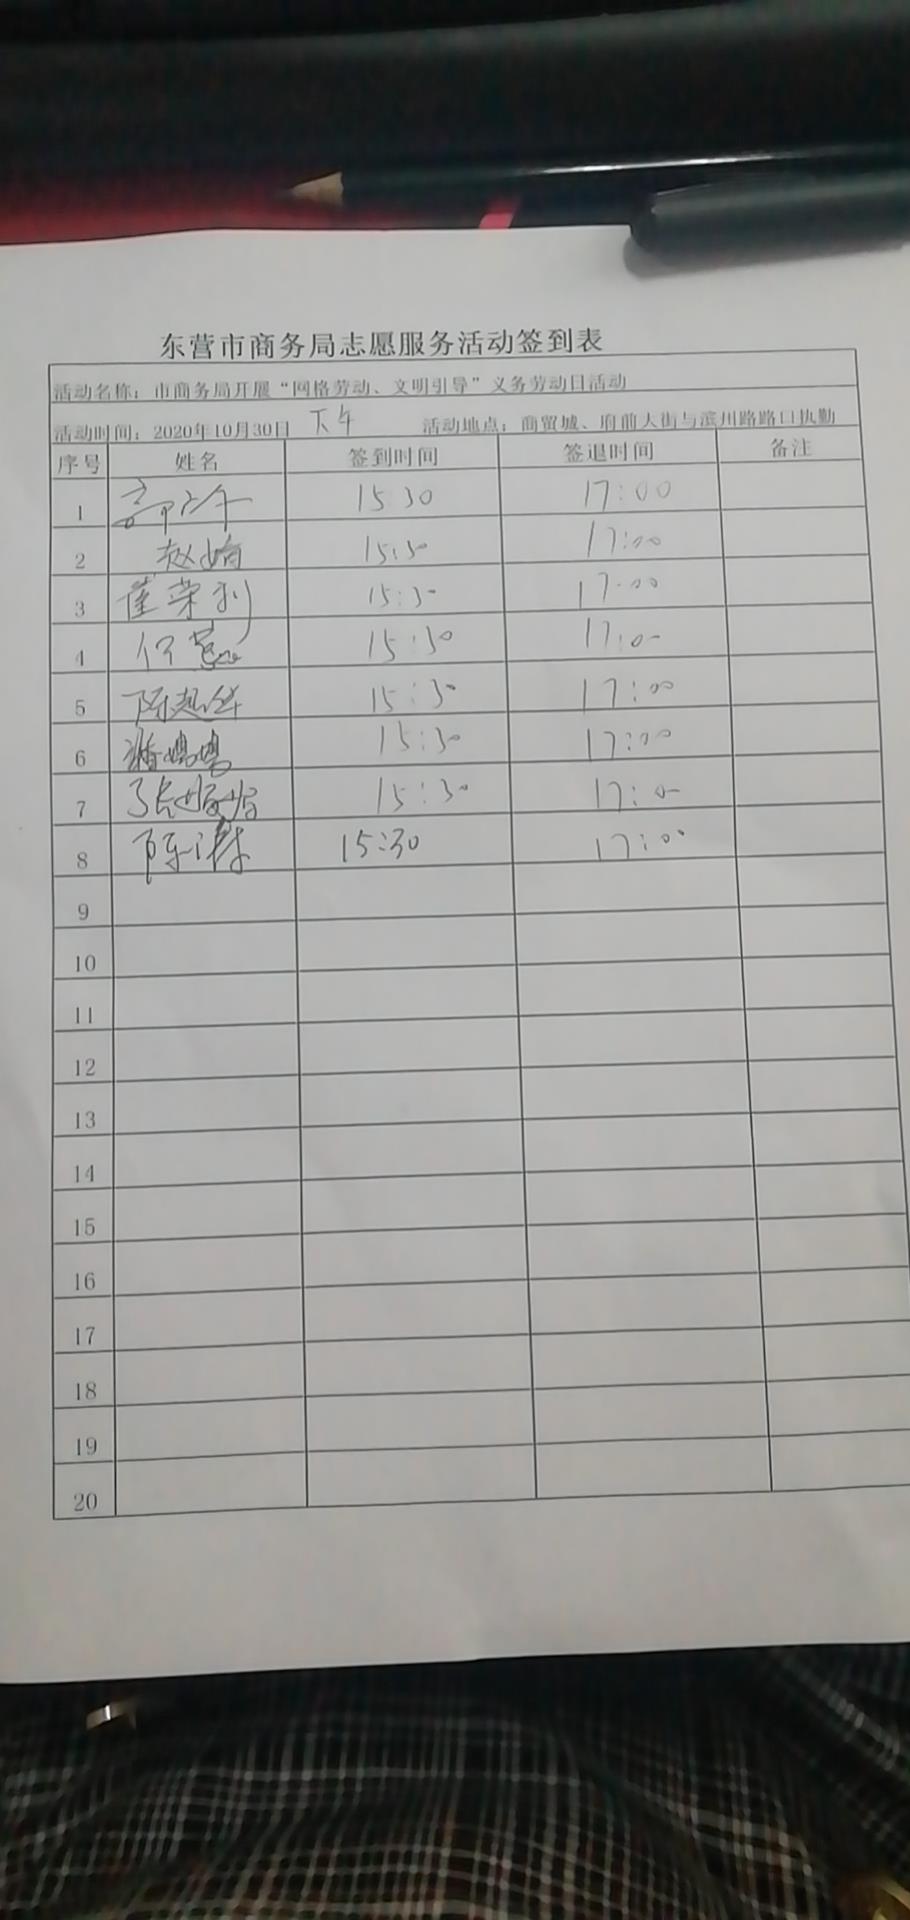 东营市商务局志愿服务活动签到表
活动名称：市商务局开展“网格劳动、文明引导”义务劳动日活动
活动时间：2020年10月30日 下午 活动地点：商贸城、府前大街与滨州路路口执勤
序号 姓名 签到时间 签退时间 备注
1 15:30 17:00
2 赵娟 15:30 17:00
3 崔荣利 15:30 17:00
4 15:30 17:00
5 陈延华 15:30 17:00
6 潘嫦嫦 15:30 17:00
7 15:30 17:00
8 陈涛 15:30 17:00
9
10
11
12
13
14
15
16
17
18
19
20